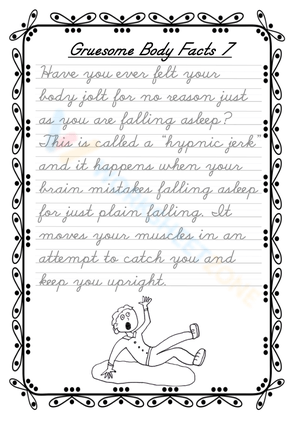 Gruesome Body Facts 7
Have you ever felt your
body jolt for no reason just
as you are falling asleep?
This is called a "hypnic jerk"
and it happens when your
brain mistakes falling asleep
for just plain falling. It
moves your muscles in an
attempt to catch you and
keep you upright.